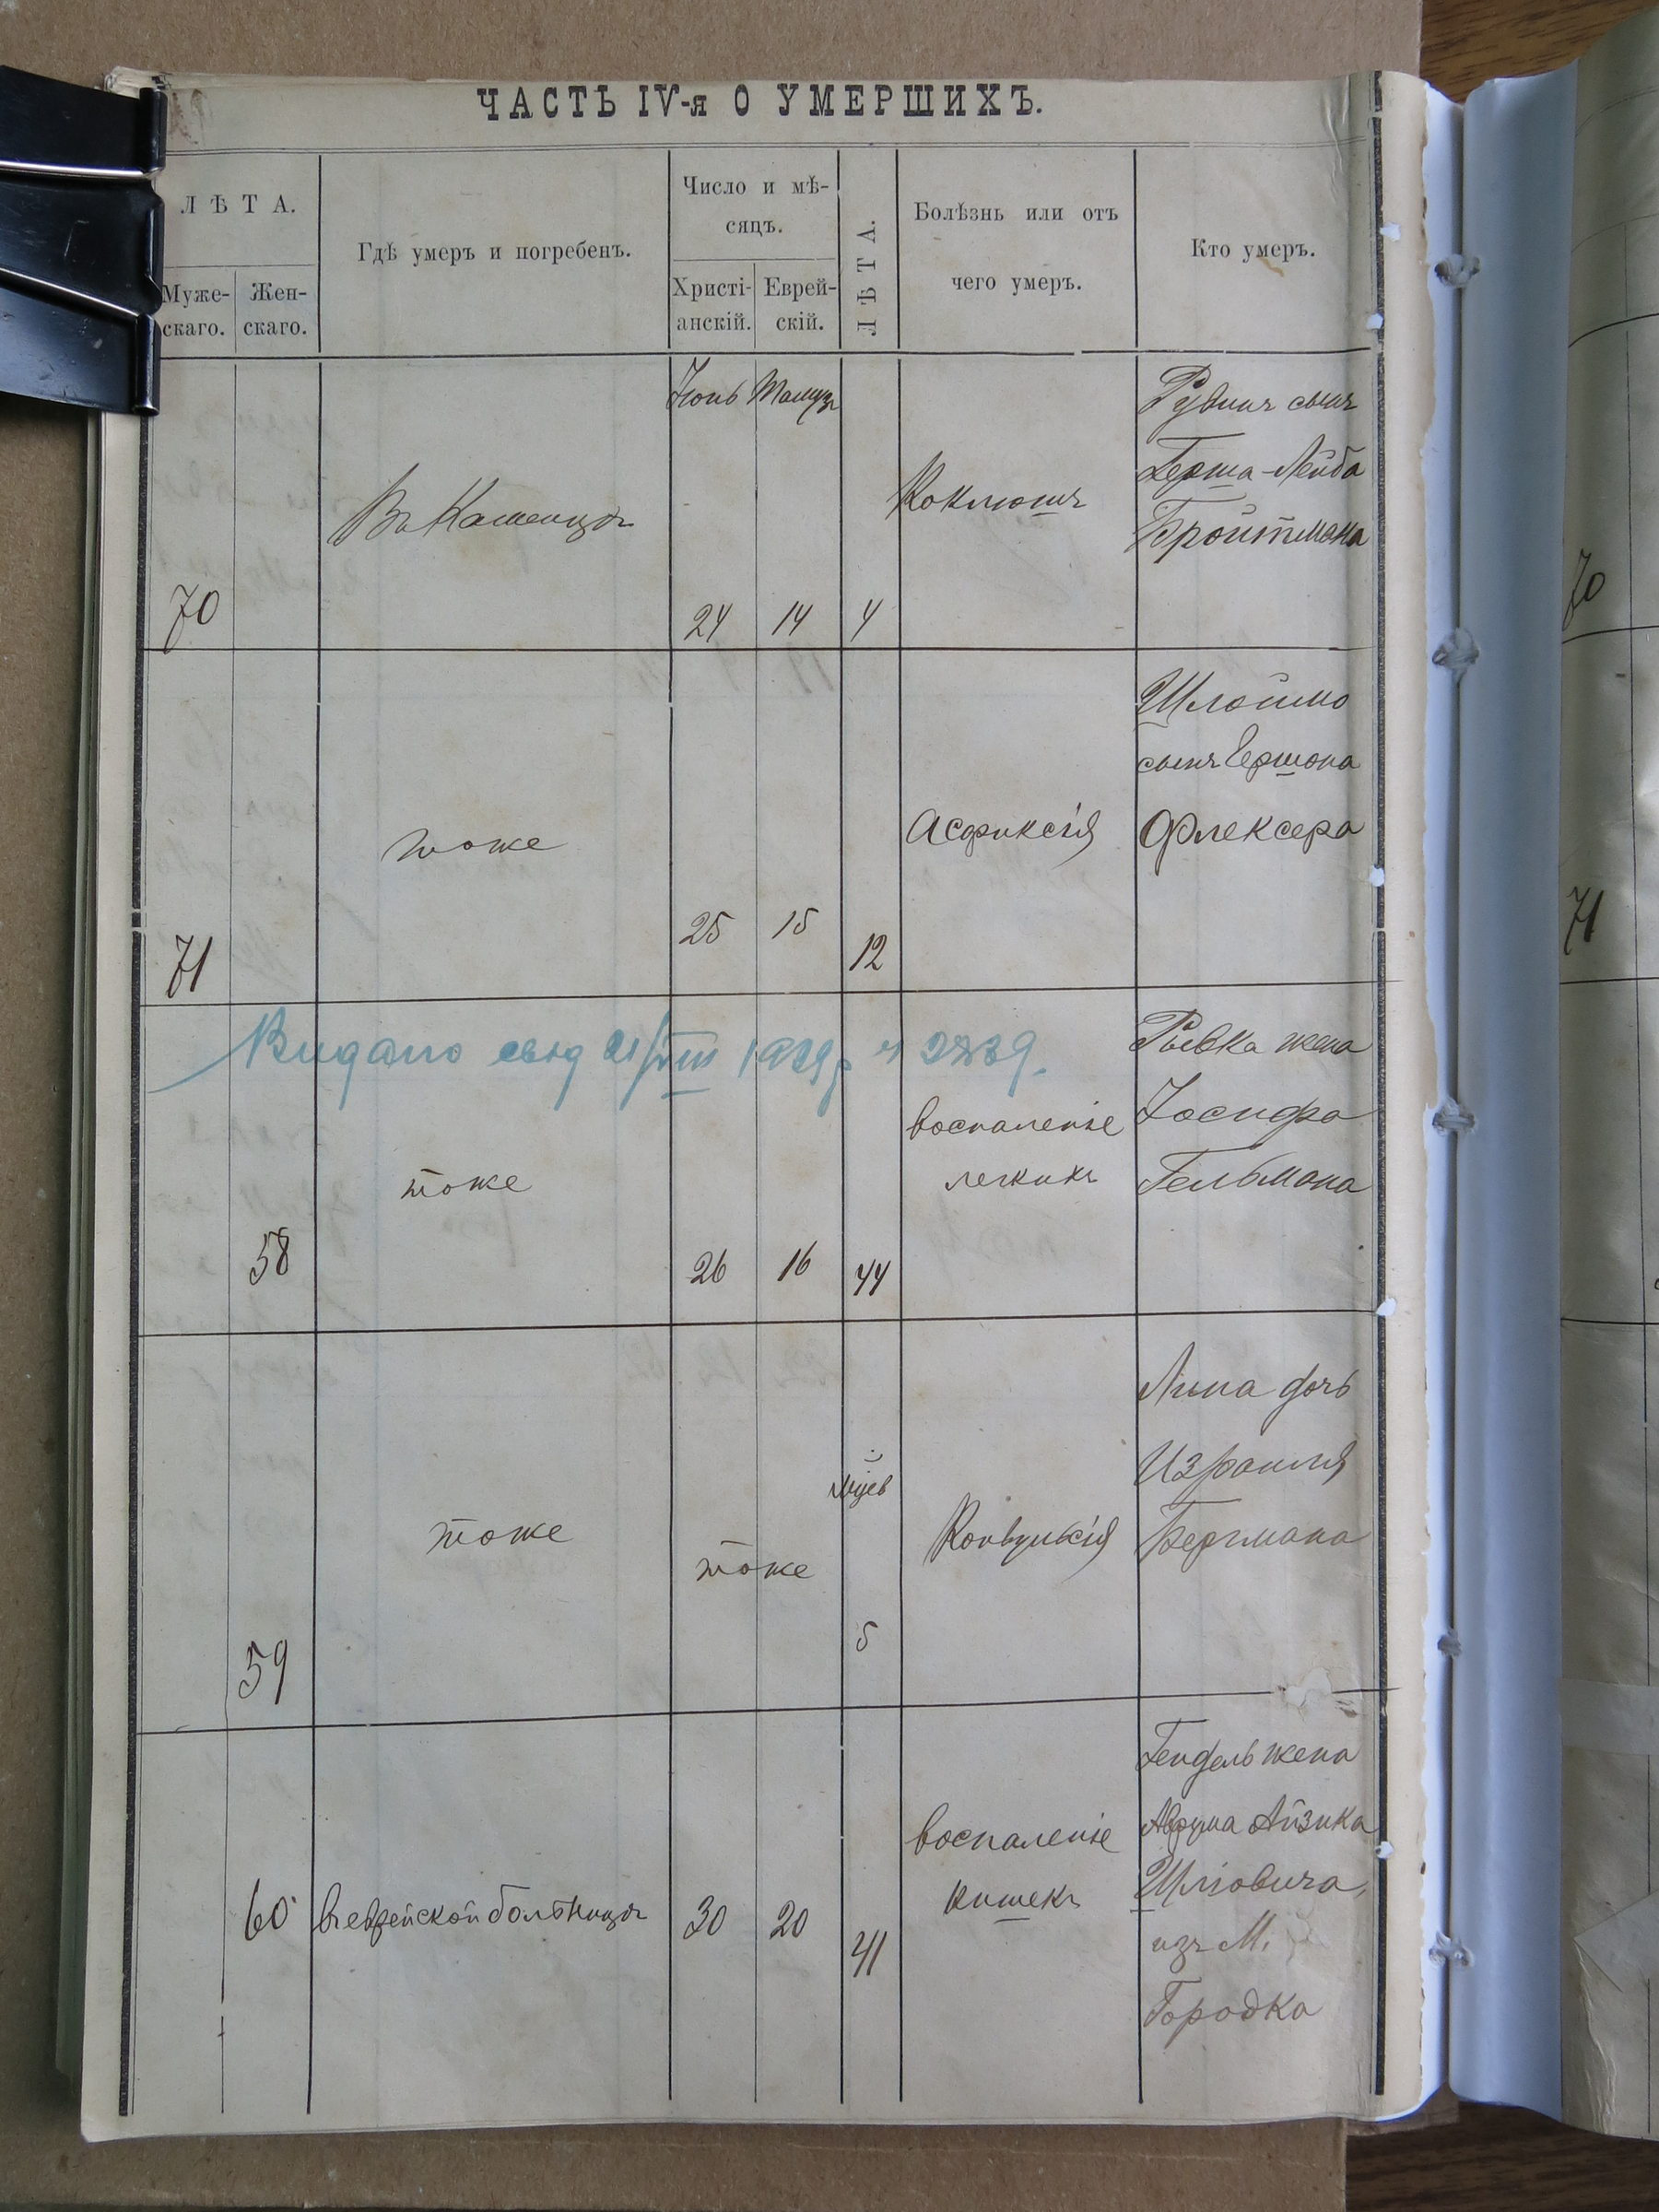 ЧАСТЬ IV-я О УМЕРШИХЪ.
ЛѢТА.
Муже-
скаго.
Жен-
скаго.
Гдѣ умеръ и погребенъ.
Число и мѣ-
сяцъ.
Христі-
анскій.
Еврей-
скій.
ЛѢТА.
Болѣзнь или отъ
чего умеръ.
Кто умеръ.
Іюнь Тамузъ
70
Въ Каменцѣ
24 14 4
Коклюшъ
Рувинъ сынъ
Герша-Лейба
Бройтмана
70
71
тоже
25 15 12
Асфиксія
Шлойма
сынъ Гершона
Флексера
71
Видано свид 21/VIII 1929р ч 2839.
58
тоже
26 16 44
воспаленіе
легкихъ
Рывка жена
Іосифа
Гельмана
59
тоже
тоже
5
Конвульсія
Лина дочь
Израиля
Бергмана
60
въ еврейской больницѣ
30 20 41
воспаленіе
кишекъ
Гендель жена
Аврума Айзика
изъ М.
Городка